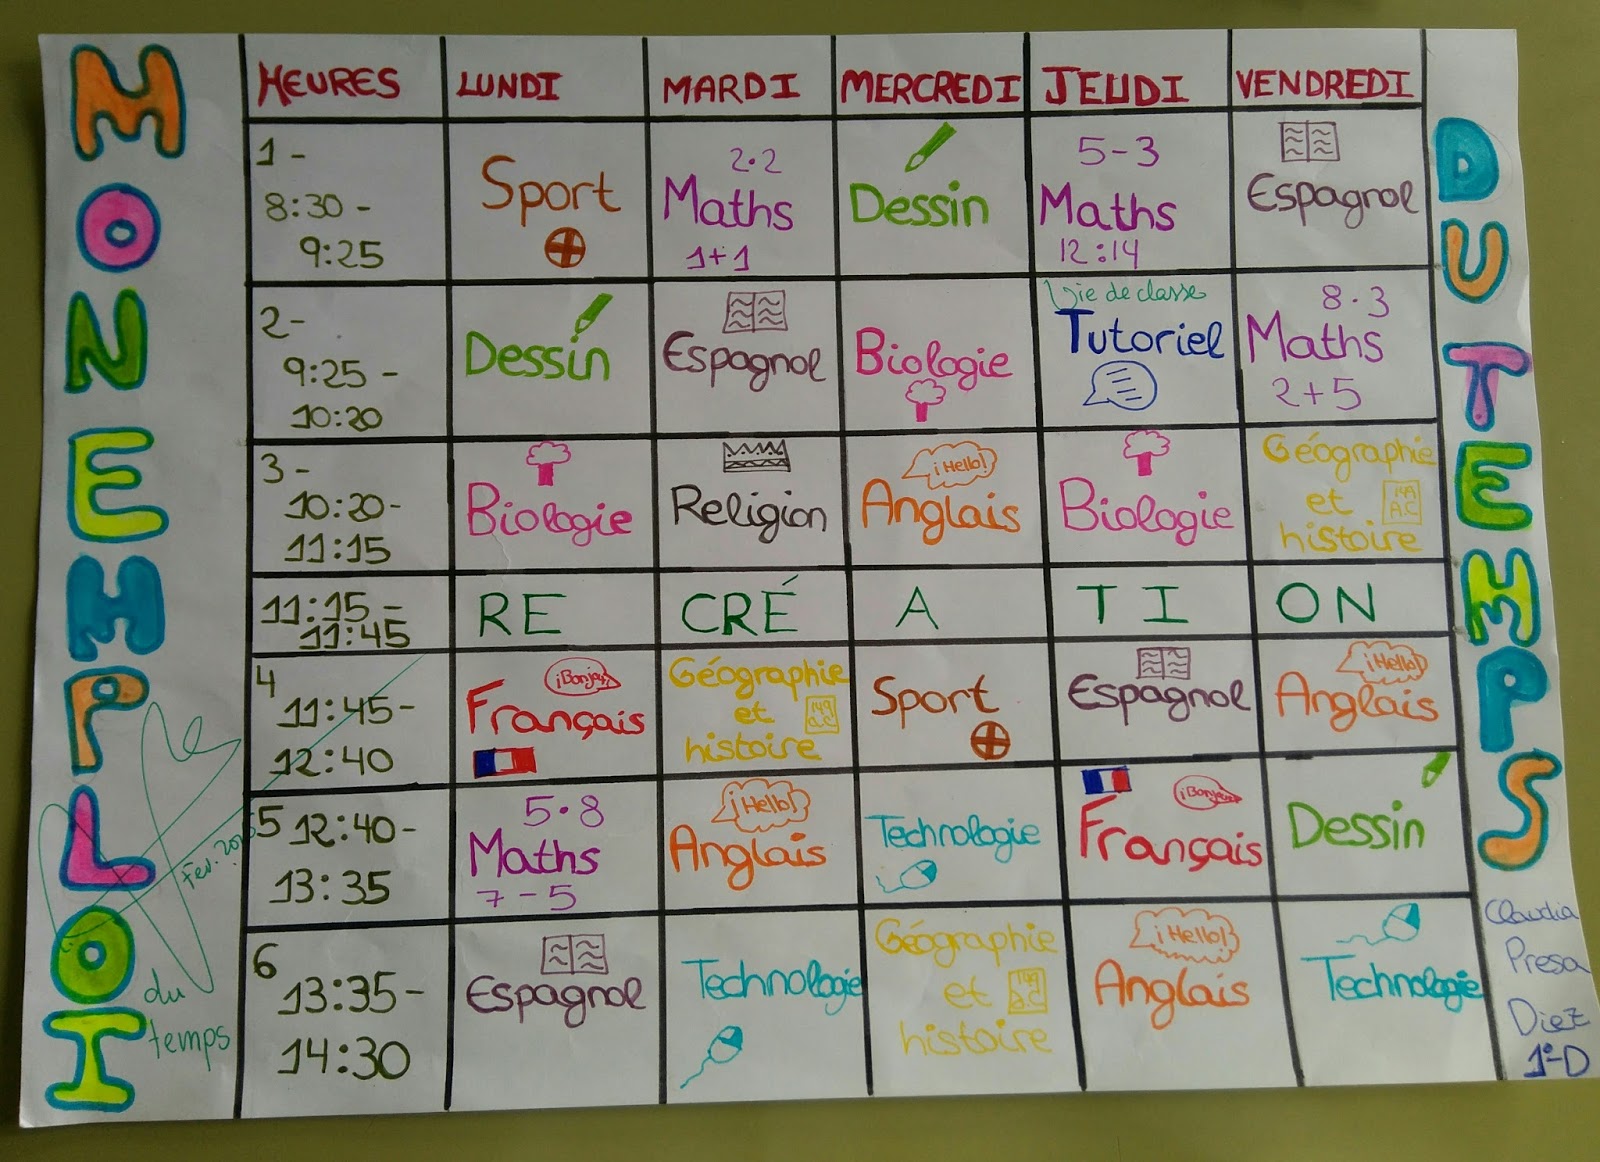 MON EMPLOI
DU TEMPS
HEURES LUNDI MARDI MERCREDI JEUDI VENDREDI
1-
8:30 -
9:25
Sport
2·2
Maths
1+1
Dessin
5-3
Maths
12:14
Espagnol
2-
9:25 -
10:20
Dessin
Espagnol
Biologie
Vie de classe
Tutoriel
8·3
Maths
2+5
3-
10:20-
11:15
Biologie
Religion
¡Hello!
Anglais
Biologie
Géographie
et
histoire
11:15-
11:45
RE CRÉ A TI ON
4
11:45-
12:40
¡Bonjour!
Français
Géographie
et
histoire
Sport
Espagnol
¡Hello!
Anglais
5 12:40-
13:35
5·8
Maths
7-5
¡Hello!
Anglais
Technologie
¡Bonjour!
Français
Dessin
6
13:35-
14:30
Espagnol
Technologie
Géographie
et
histoire
¡Hello!
Anglais
Technologie
du
temps
Claudia
Presa
Diez
1º-D